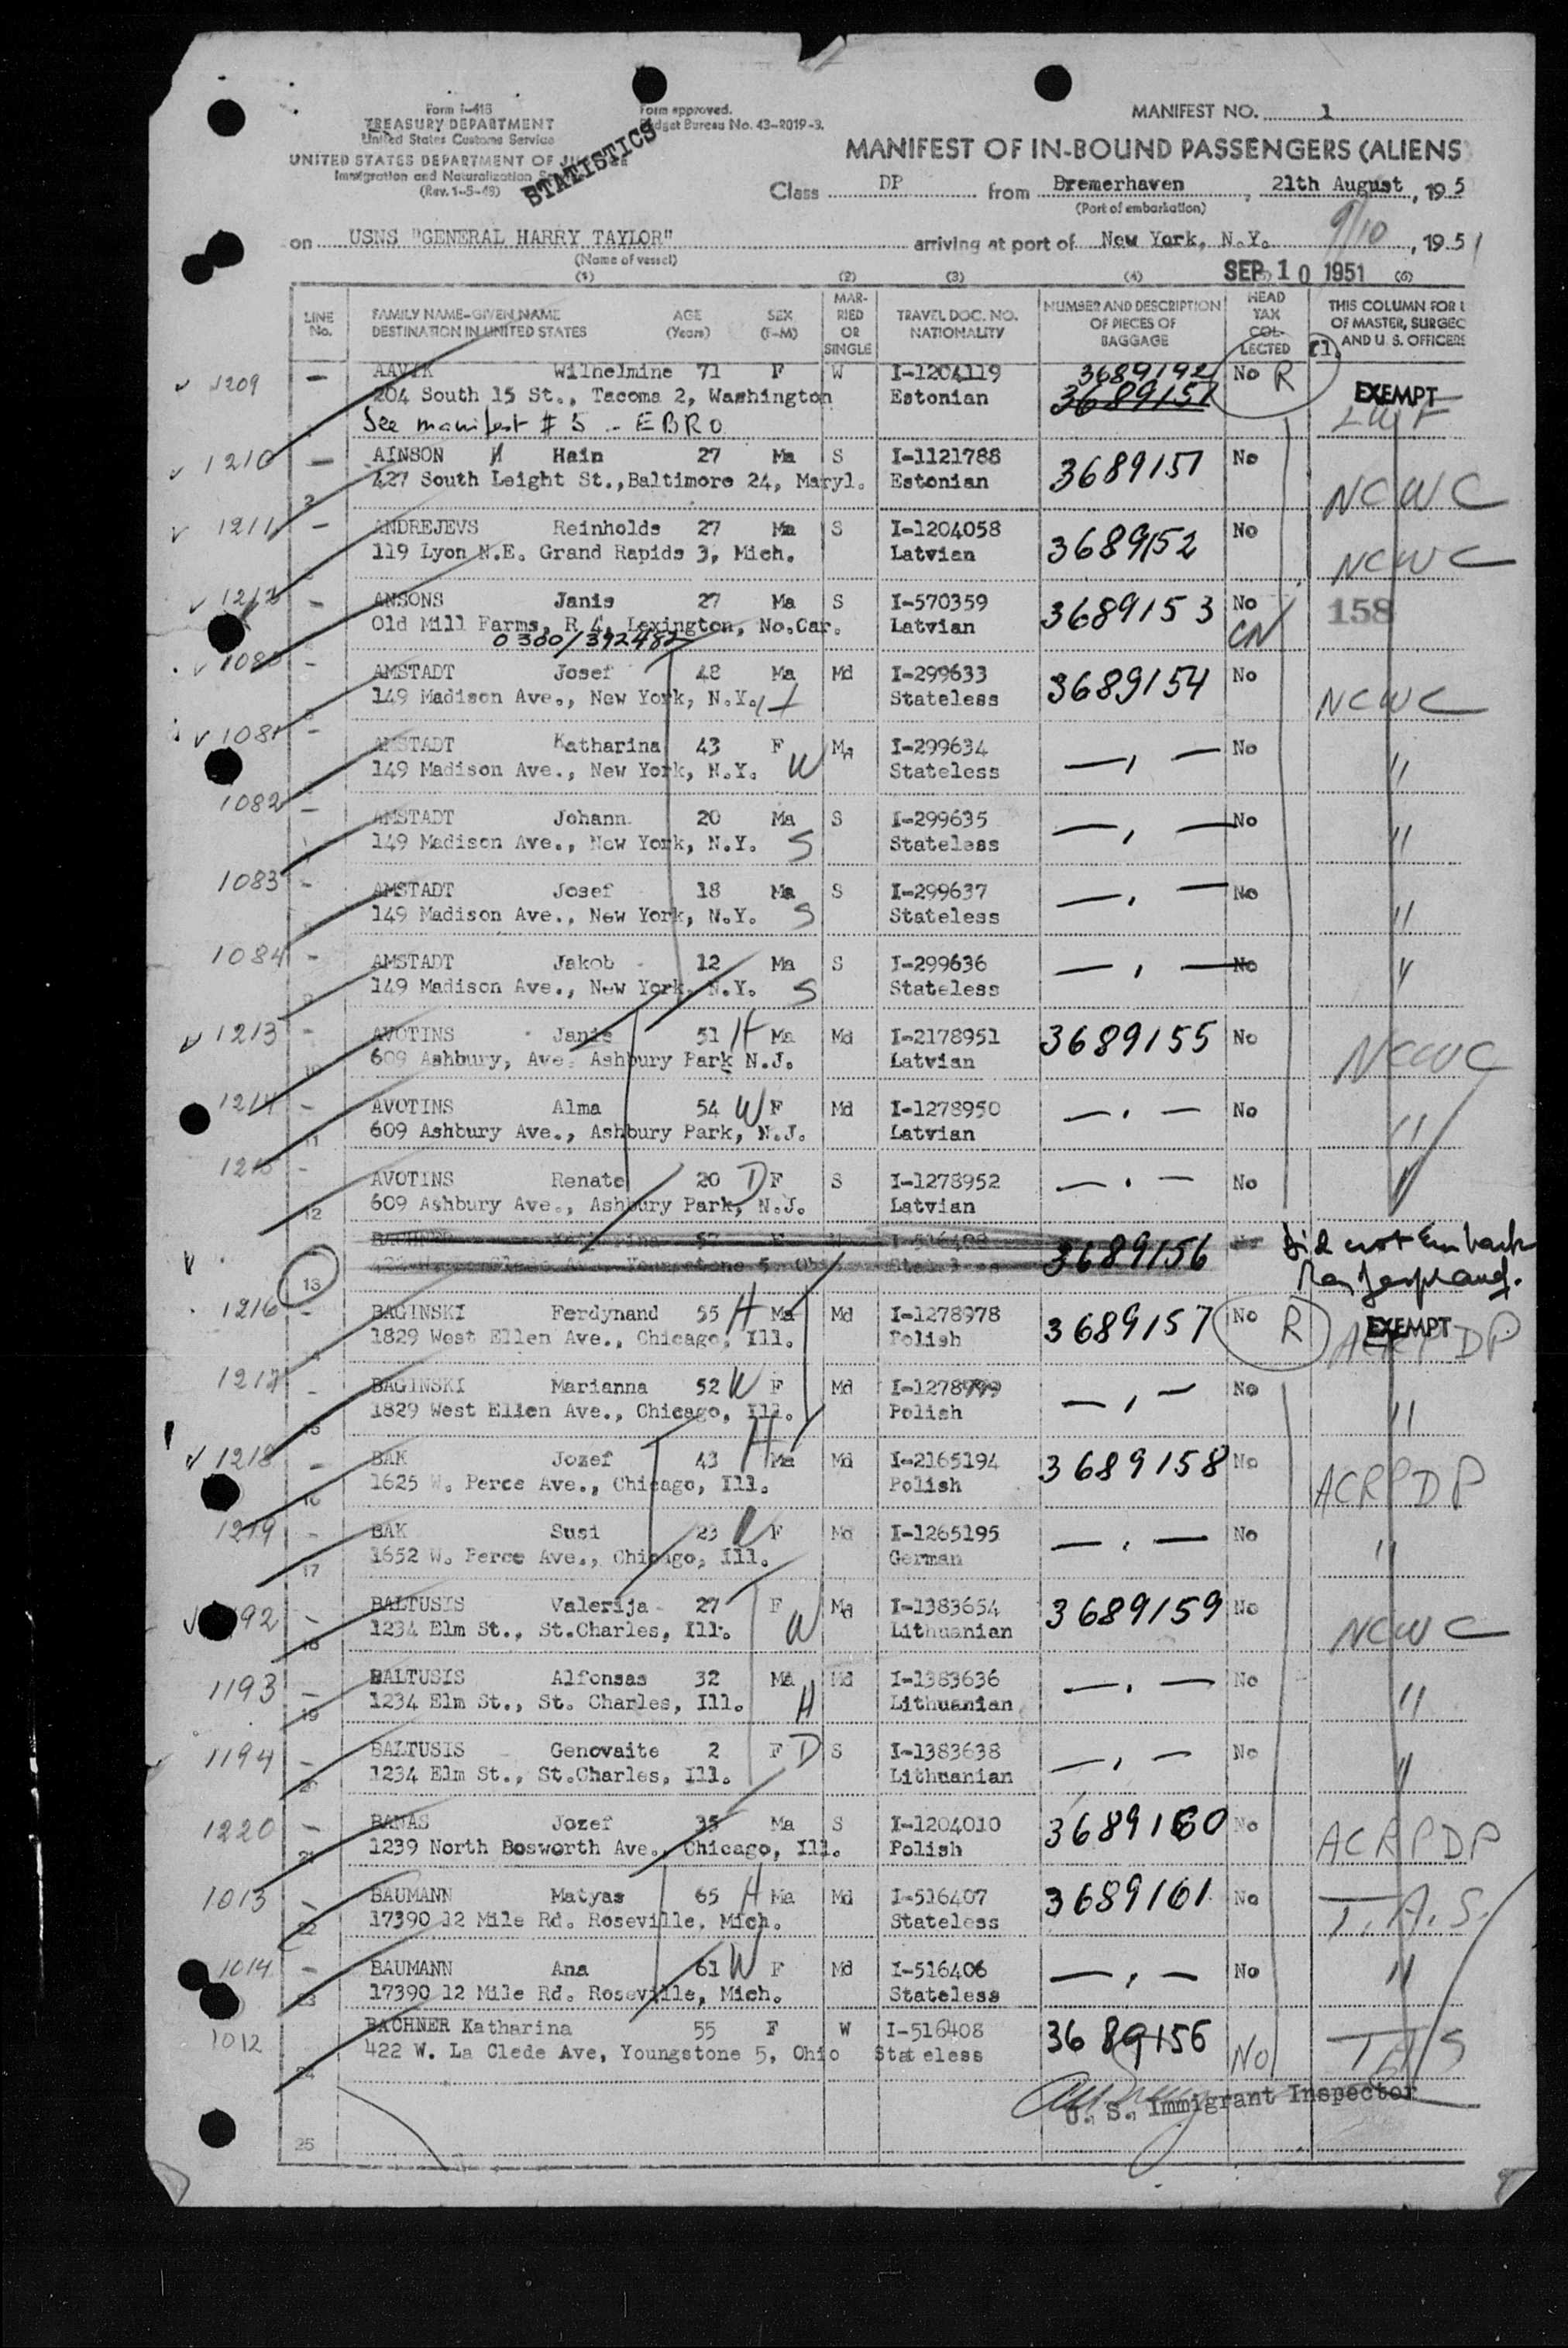 Form I-418
TREASURY DEPARTMENT
United States Customs Service
UNITED STATES DEPARTMENT OF JUSTICE
Immigration and Naturalization
(Rev. 1-5-48)
Form approved.
Budget Bureau No. 43-2019-3.
STATISTICS
MANIFEST NO. 1
MANIFEST OF IN-BOUND PASSENGERS (ALIENS)
Class DP from Bremerhaven, 21th August, 195
(Port of embarkation)
on USNS "GENERAL HARRY TAYLOR" arriving at port of New York, N.Y. 9/10, 1951
(Name of vessel)
SEP 10 1951
(1) (2) (3) (4) (6)
LINE No. FAMILY NAME-GIVEN NAME AGE SEX MARRIED OR SINGLE TRAVEL DOC. NO. NUMBER AND DESCRIPTION HEAD TAX COLLECTED THIS COLUMN FOR
DESTINATION IN UNITED STATES (Years) (F-M) NATIONALITY OF PIECES OF BAGGAGE OF MASTER, SURGEO AND U. S. OFFICERS
1209 AAVIK Wilhelmine 71 F W I-1204119 3689192 No R EXEMPT
204 South 15 St., Tacoma 2, Washington Estonian 3689151 LWF
See manifest # 5 - EBRO
1210 AINSON H Hain 27 Ma S I-1121788 3689151 No
2 427 South Leight St.,Baltimore 24, Maryl. Estonian NCWC
1211 ANDREJEVS Reinholds 27 Ma S I-1204058 3689152 No
119 Lyon N.E. Grand Rapids 3, Mich. Latvian NCWC
1212 ANSONS Janis 27 Ma S I-570359 3689153 No 158
Old Mill Farms, R 4, Lexington, No.Car. Latvian CN
0300/392482
1080 AMSTADT Josef 48 Ma Md I-299633 3689154 No
149 Madison Ave., New York, N.Y. H Stateless NCWC
1081 AMSTADT Katharina 43 F Md I-299634 — , — No
149 Madison Ave., New York, N.Y. W Stateless "
1082 AMSTADT Johann 20 Ma S I-299635 — , — No
149 Madison Ave., New York, N.Y. S Stateless "
1083 AMSTADT Josef 18 Ma S I-299637 — , — No
149 Madison Ave., New York, N.Y. S Stateless "
1084 AMSTADT Jakob 12 Ma S I-299636 — , — No
149 Madison Ave., New York, N.Y. S Stateless "
1213 AVOTINS Janis 51 H Ma Md I-2178951 3689155 No
10 609 Ashbury, Ave. Ashbury Park N.J. Latvian NCWC
1214 AVOTINS Alma 54 W F Md I-1278950 — . — No
11 609 Ashbury Ave., Ashbury Park, N.J. Latvian "
1215 AVOTINS Renate 20 D F S I-1278952 — . — No
12 609 Ashbury Ave., Ashbury Park, N.J. Latvian "
BACHNER Katharina 57 F I-516408 3689156 did not Embark
13
1216 BAGINSKI Ferdynand 55 H Ma Md I-1278978 3689157 No R EXEMPT
1829 West Ellen Ave., Chicago, Ill. Polish ACRPDP
1217 BAGINSKI Marianna 52 W F Md — , — No
15 1829 West Ellen Ave., Chicago, Ill. Polish "
1218 BAK Jozef 43 H Ma Md I-2165194 3689158 No
16 1625 W. Perce Ave., Chicago, Ill. Polish ACRPDP
1219 BAK Susi 23 W F Md I-1265195 — . — No
17 1652 W. Perce Ave., Chicago, Ill. German "
92 BALTUSIS Valerija 27 F Md I-1383654 3689159 No
18 1234 Elm St., St.Charles, Ill. W Lithuanian NCWC
1193 BALTUSIS Alfonsas 32 Ma Md I-1383636 — . — No
19 1234 Elm St., St. Charles, Ill. H Lithuanian "
1194 BALTUSIS Genovaite 2 F D S I-1383638 — , — No
20 1234 Elm St., St.Charles, Ill. Lithuanian "
1220 BANAS Jozef 35 Ma S I-1204010 3689160 No
21 1239 North Bosworth Ave., Chicago, Ill. Polish ACRPDP
1013 BAUMANN Matyas 65 H Ma Md I-516407 3689161 No
22 17390 12 Mile Rd. Roseville, Mich. Stateless T.A.S.
1014 BAUMANN Ana 61 W F Md I-516406 — , — No
23 17390 12 Mile Rd. Roseville, Mich. Stateless "
1012 BACHNER Katharina 55 F W I-516408 3689156 No
24 422 W. La Clede Ave, Youngstone 5, Ohio Stateless TAS
U. S. Immigrant Inspector
25